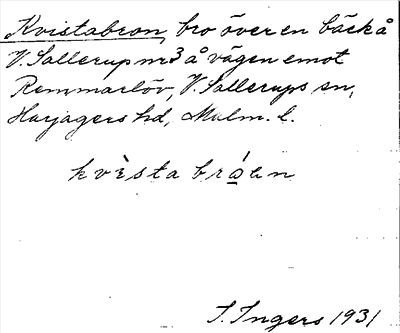 Kvistabron, bro över en bäck å
V. Sallerup nr 3 å vägen emot
Remmarlöv, V. Sallerups sn,
Harjagers hd, Malm. l.
kvista
I. Ingers 1931